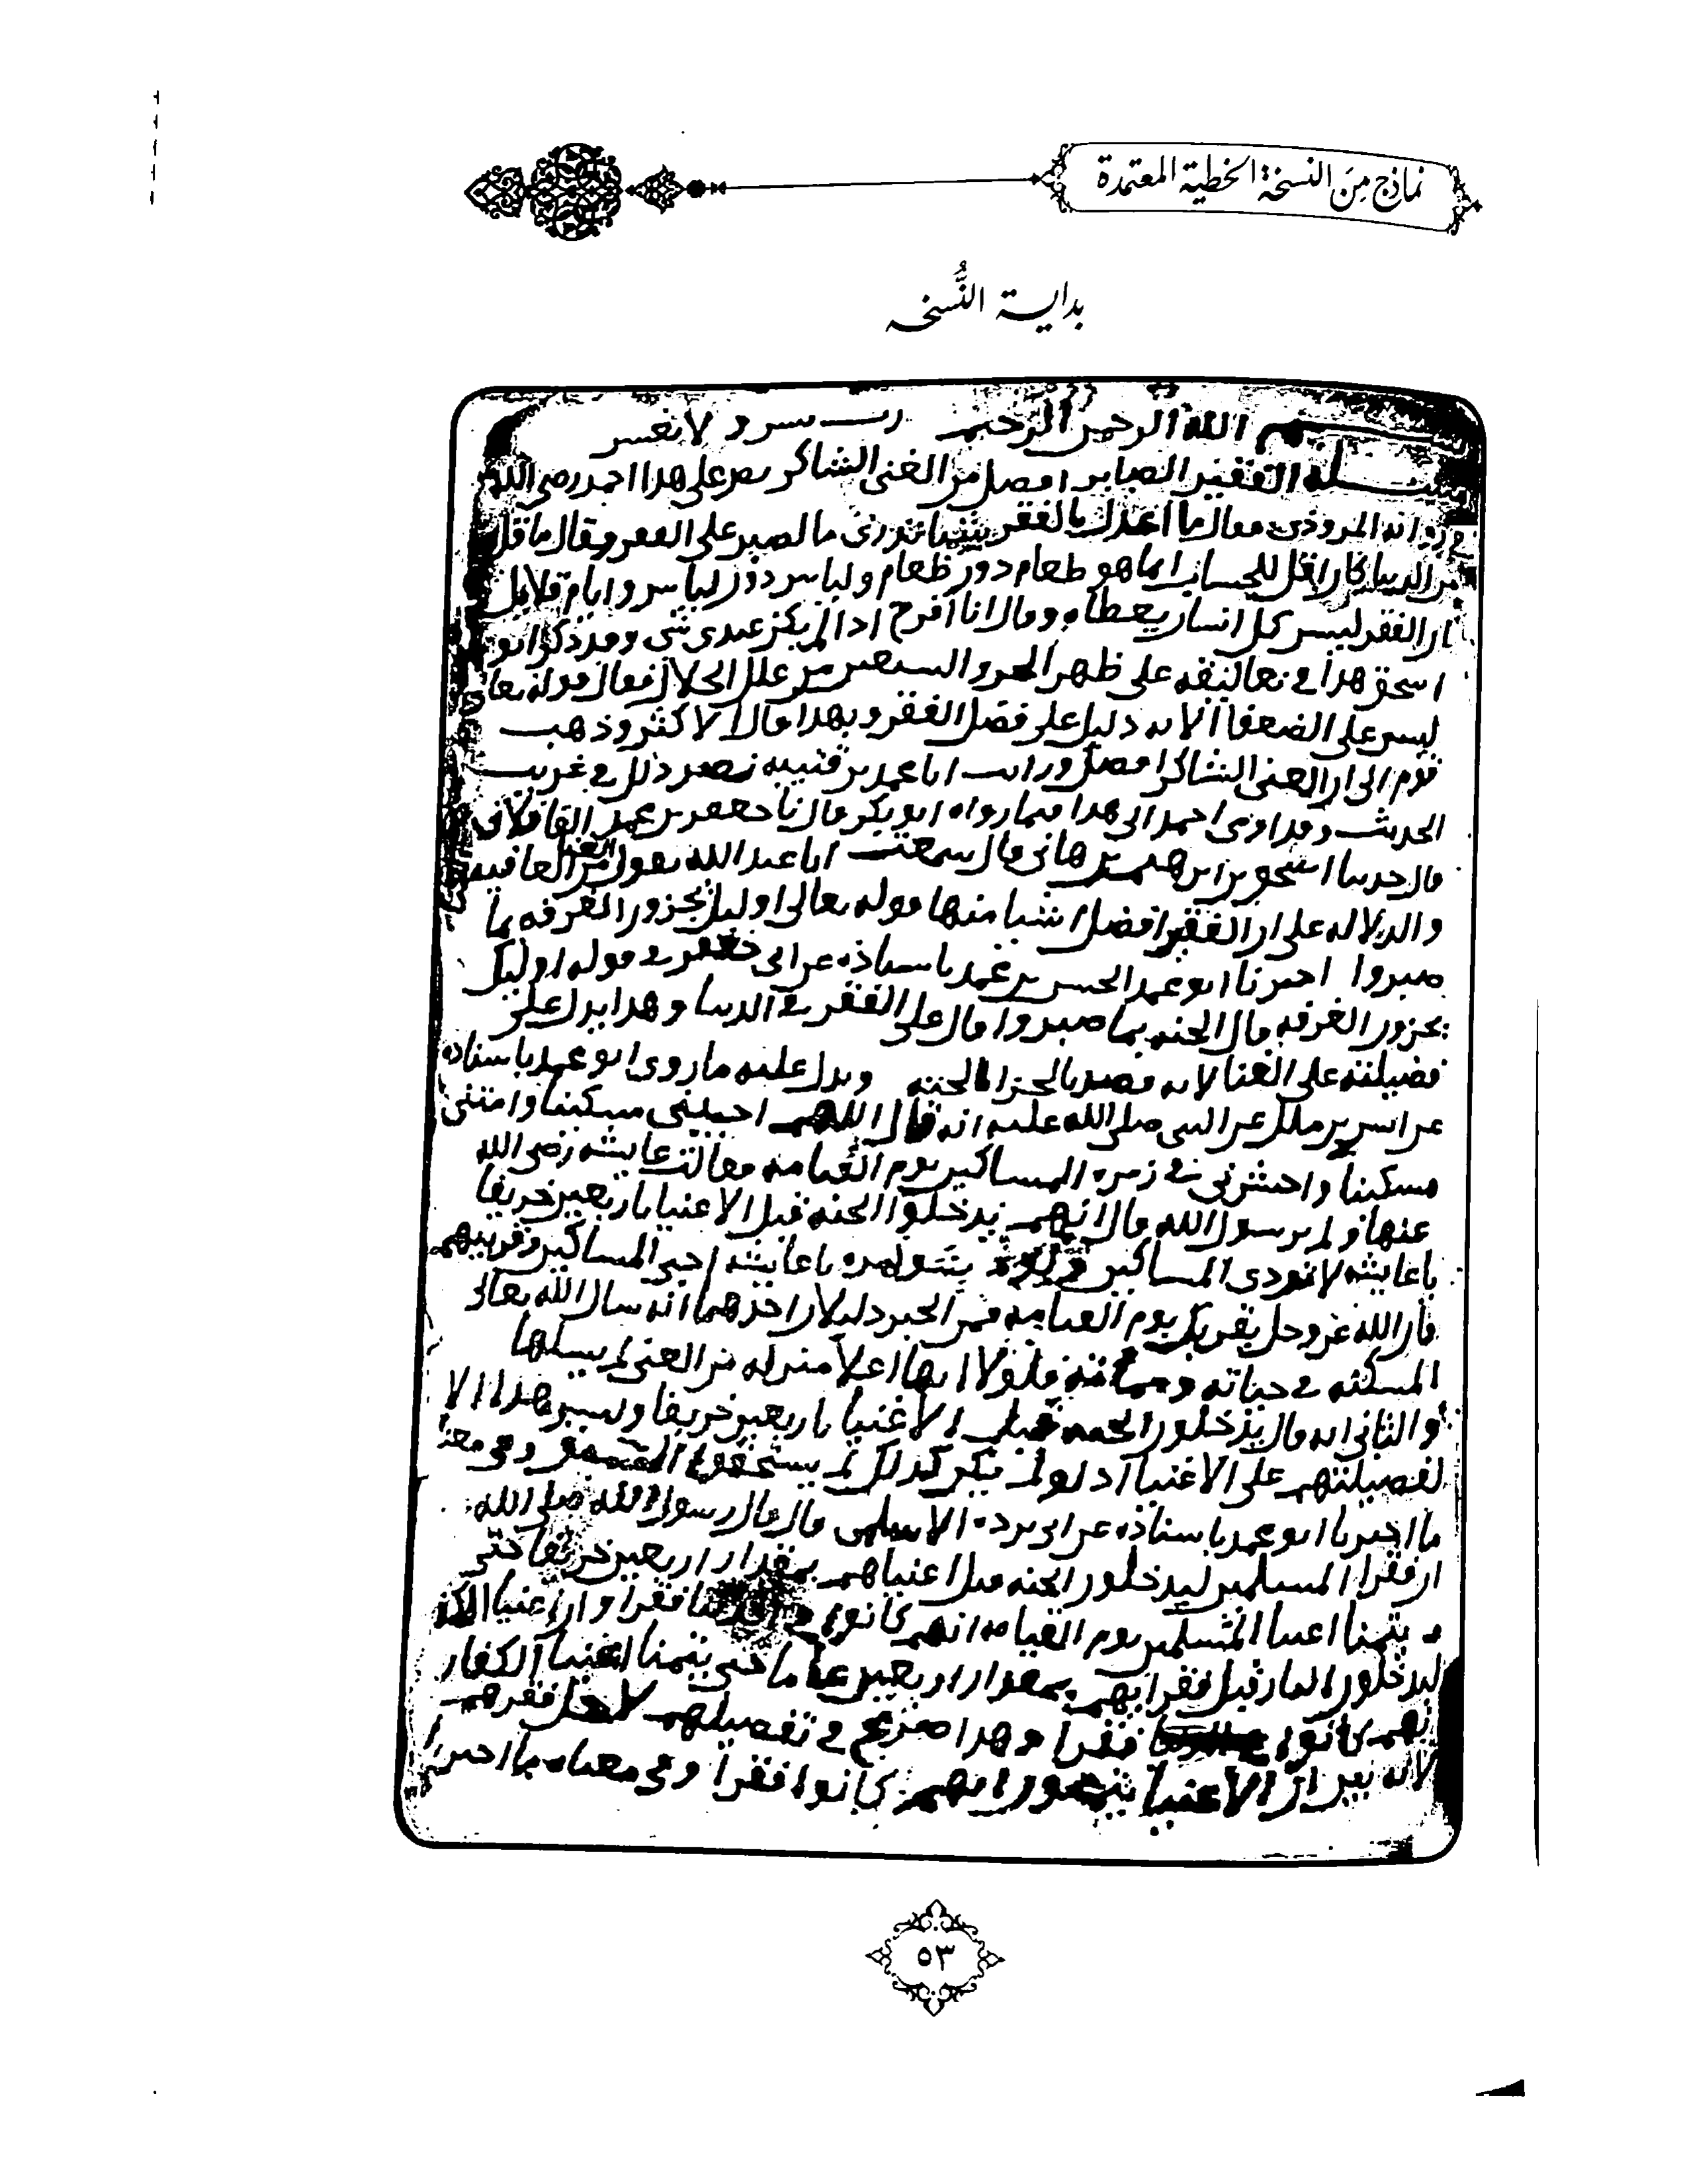 نماذج من النسخة الخطية المعتمدة
بداية النُّسخة
بسم الله الرحمن الرحيم رب يسر ولا تعسر
مسئلة الفقير الصابر افضل من الغني الشاكر نص على هذا احمد رضي الله
في رواية المروذي فقال ما اعدل بالفقر شيئا تدري ما الصبر على الفقر وقال ما قل
من الدنيا كان اقل للحساب انما هو طعام دون طعام ولباس دون لباس وايام قلايل
ان الفقر ليس كل انسان يعطاه وقال انا افرح اذا لم يكن عندي شي وقد ذكر ابو
اسحق هذا في تعاليقه على ظهر الجزو من علل الخلال فقال قوله تعالى
ليس على الضعفا الاية دليل على فضل الفقر وبهذا قال الاكثر وذهب
قوم الى ان الغني الشاكر افضل ورايت ابا محمد بن قتيبة نصر ذلك في غريب
الحديث وقد اومى احمد الى هذا فيما رواه ابو بكر قال نا جعفر بن محمد القافلاني
قال حدثنا اسحق بن ابرهيم بن هاني قال سمعت ابا عبد الله يقول الغنا من العافية
والدلاله على ان الفقير افضل اشيا منها قوله تعالى اوليك يجزون الغرفه بما
صبروا اخبرنا ابو محمد الحسن بن محمد باسناذه عن ابي جعفر في قوله اوليك
يجزون الغرفه قال الجنه بما صبروا قال على الفقر في الدنيا وهذا يدل على
فضيلته على الغنا لانه قصره بالجزا الجنه ويدل عليه ما روى ابو محمد باسناده
عن انس بن ملك عن النبي صلى الله عليه انه قال اللهم احييني مسكينا وامتني
مسكينا واحشرني في زمره المساكين يوم القيامه فقالت عايشه رضي الله
عنها ولم يرسول الله قال انهم يدخلوا الجنه قبل الاغنيا باربعين خريفا
يا عايشه لا تردي المساكين ولو بشق تمره يا عايشه احبي المساكين وقربيهم
فان الله عز وجل يقربك يوم القيامه فمن الخبر دليلان احدهما انه سال الله تعالى
المسكنه في حياته ومماته فلولا انها اعلا منزله من الغنى لم يسلها
والثاني انه قال يدخلون الجنه قبل الاغنيا باربعين خريفا وليس هذا الا
لفضيلتهم على الاغنيا اذ لو لم يكن كذلك لم يستحقوا وفي معنا
ما اخبرنا ابو محمد باسناذه عن ابي برده الاسلمي قال قال رسول الله صلى الله
ان فقرا المسلمين ليدخلون الجنه قبل اغنياهم بمقدار اربعين خريفا حتى
يتمنا اغنيا المسلمين يوم القيامه انهم كانوا في الدنيا فقرا وان اغنيا الكفا
ليدخلون النار قبل فقرايهم بمقدار اربعين عاما حتى يتمنا اغنيا الكفار
انهم كانوا فقرا وهذا صريح في تفضيلهم لاجل فقرهم
لانه بين ان الاغنيا يتمنون انهم كانوا فقرا وفي معناه ما اخبرنا
٥٣